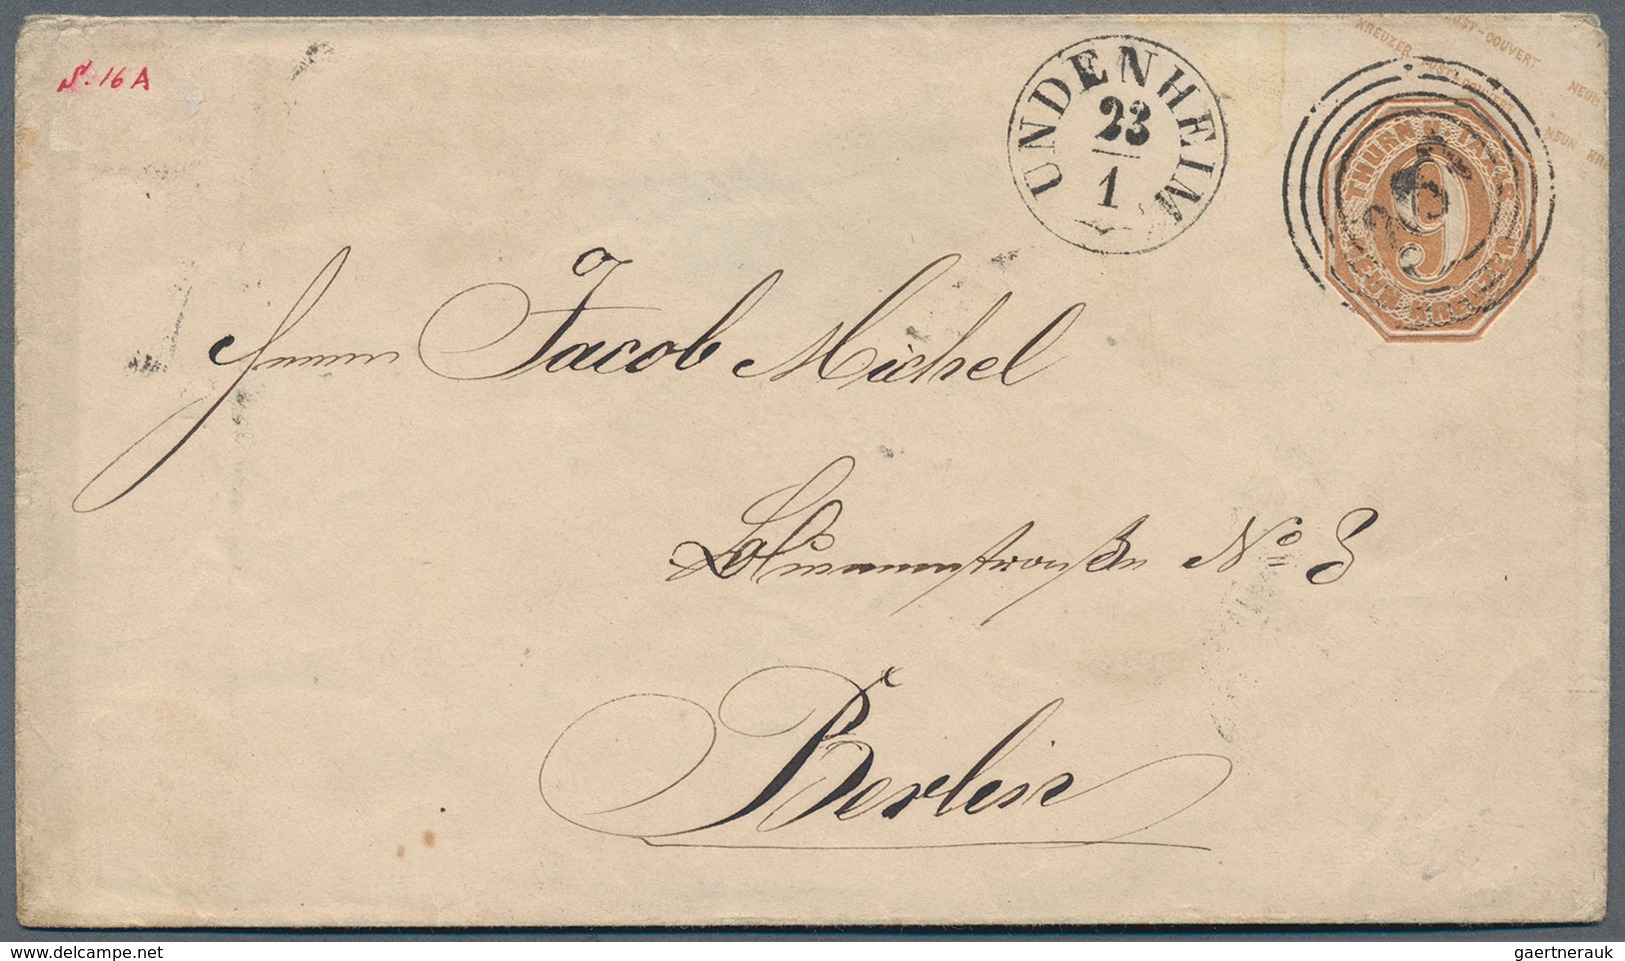 S. 16 A
UNDENHEIM
23
1
POST-COUVERT NEUN
KREUZER POST-COUVERT
NEUN KREUZER
THURN U. TAXIS
9
NEUN KREUZER
Herrn Jacob Michel
No 3
Berlin
delcampe.net
gaertnerauk